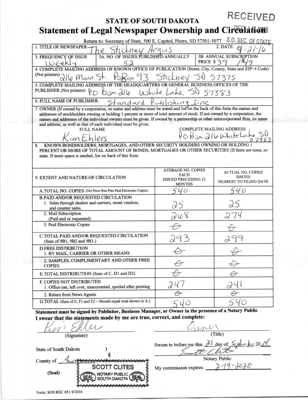 STATE OF SOUTH DAKOTA
RECEIVED
Statement of Legal Newspaper Ownership and Circulation
Return to: Secretary of State, 500 E. Capitol, Pierre, SD 57501-5077 S.D. SEC. OF STATE
1. TITLE OF NEWSPAPER The Stickney Argus
2. DATE 9-21-16
3. FREQUENCY OF ISSUE Weekly
3A. NO. OF ISSUES PUBLISHED ANNUALLY 52
3B. ANNUAL SUBSCRIPTION PRICE $39
4. COMPLETE MAILING ADDRESS OF KNOWN OFFICE OF PUBLICATION (Street, City, County, State and ZIP+4 Code) (Not printers)
216 Main St. PO Box 93 Stickney SD 57375
5. COMPLETE MAILING ADDRESS OF THE HEADQUARTERS OR GENERAL BUSINESS OFFICES OF THE PUBLISHERS (Not printers)
PO Box 216 White Lake, SD 57383
6. FULL NAME OF PUBLISHER: Standard Publishing Inc
7. OWNER (If owned by a corporation, its name and address must be stated and also immediately
FULL NAME
COMPLETE MAILING ADDRESS
Kim Ehlers
PO Box 216 White Lake SD 57383
8. KNOWN BONDHOLDERS, MORTGAGEES, AND OTHER SECURITY HOLDERS OWNING OR HOLDING 1 PERCENT OR MORE OF TOTAL AMOUNT OF BONDS, MORTGAGES OR OTHER SECURITIES (If there are none, so state. If more space is needed, list on back of this form.
9. EXTENT AND NATURE OF CIRCULATION
AVERAGE NO. COPIES EACH ISSUED PRECEDING 12 MONTHS
ACTUAL NO. COPIES ISSUED NEAREST TO FILING DATE
A. TOTAL NO. COPIES (Net Press Run Plus Paid Electronic Copies) 540 540
B. PAID AND/OR REQUESTED CIRCULATION
1. Sales through dealers and carriers, street vendors, and counter sales. 25 25
2. Mail Subscription (Paid and or requested) 268 274
3. Paid Electronic Copies
C. TOTAL PAID AND/OR REQUESTED CIRCULATION (Sum of 9B1, 9B2 and 9B3) 293 299
D. FREE DISTRIBUTION
1. BY MAIL, CARRIER OR OTHER MEANS
2. SAMPLES, COMPLIMENTARY AND OTHER FREE COPIES
E. TOTAL DISTRIBUTION (Sum of C, D1 and D2)
F. COPIES NOT DISTRIBUTED
1. Office use, left over, unaccounted, spoiled after printing 247 241
2. Return from News Agents
G. TOTAL (Sum of E, F1 and F2 - Should equal total shown in A.) 540 540
Statement must be signed by Publisher, Business Manager, or Owner in the presence of a Notary Public
I swear that the statements made by me are true, correct, and complete:
Kim Ehlers
Owner
(Signature)
(Title)
State of South Dakota )
§
County of
Sworn to before me this 21 day of September 2016
Scott Clites
Notary Public
(Seal)
SCOTT CLITES
NOTARY PUBLIC
SOUTH DAKOTA
SEAL
SEAL
My commission expires: 2-19-2020
Form: SOS REC 051 9/2016